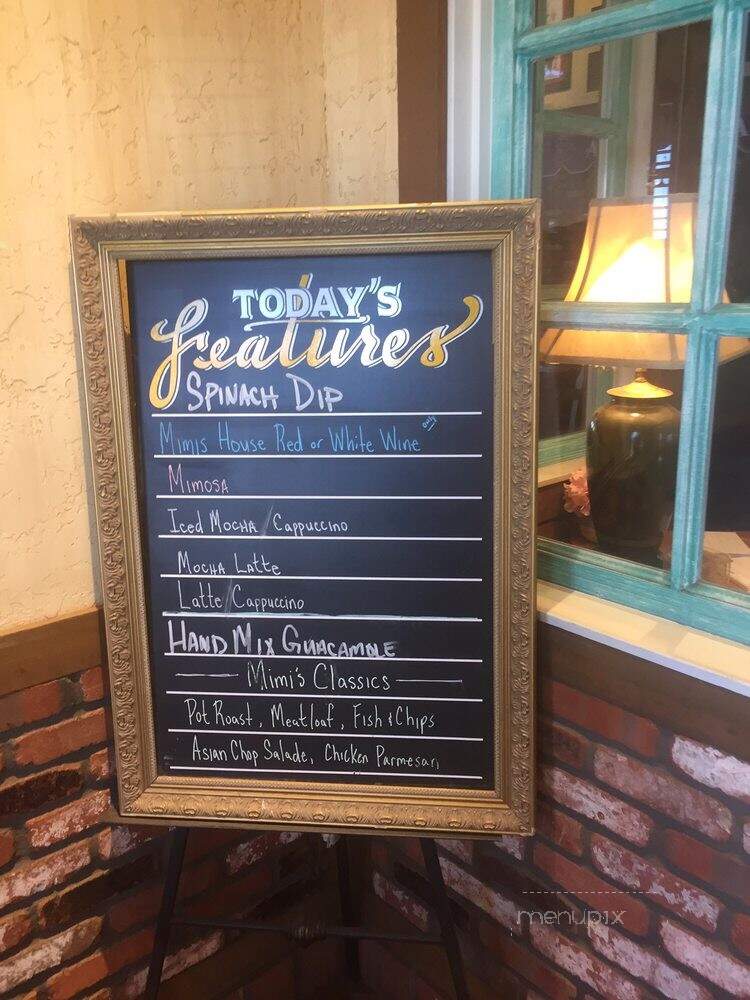 TODAY'S
Features
SPINACH DIP
Mimis House Red or White Wine only
Mimosa
Iced Mocha / Cappuccino
Mocha Latte
Latte / Cappuccino
HAND MIX GUACAMOLE
Mimi's Classics
Pot Roast, Meatloaf, Fish & Chips
Asian Chop Salade, Chicken Parmesan
menupix